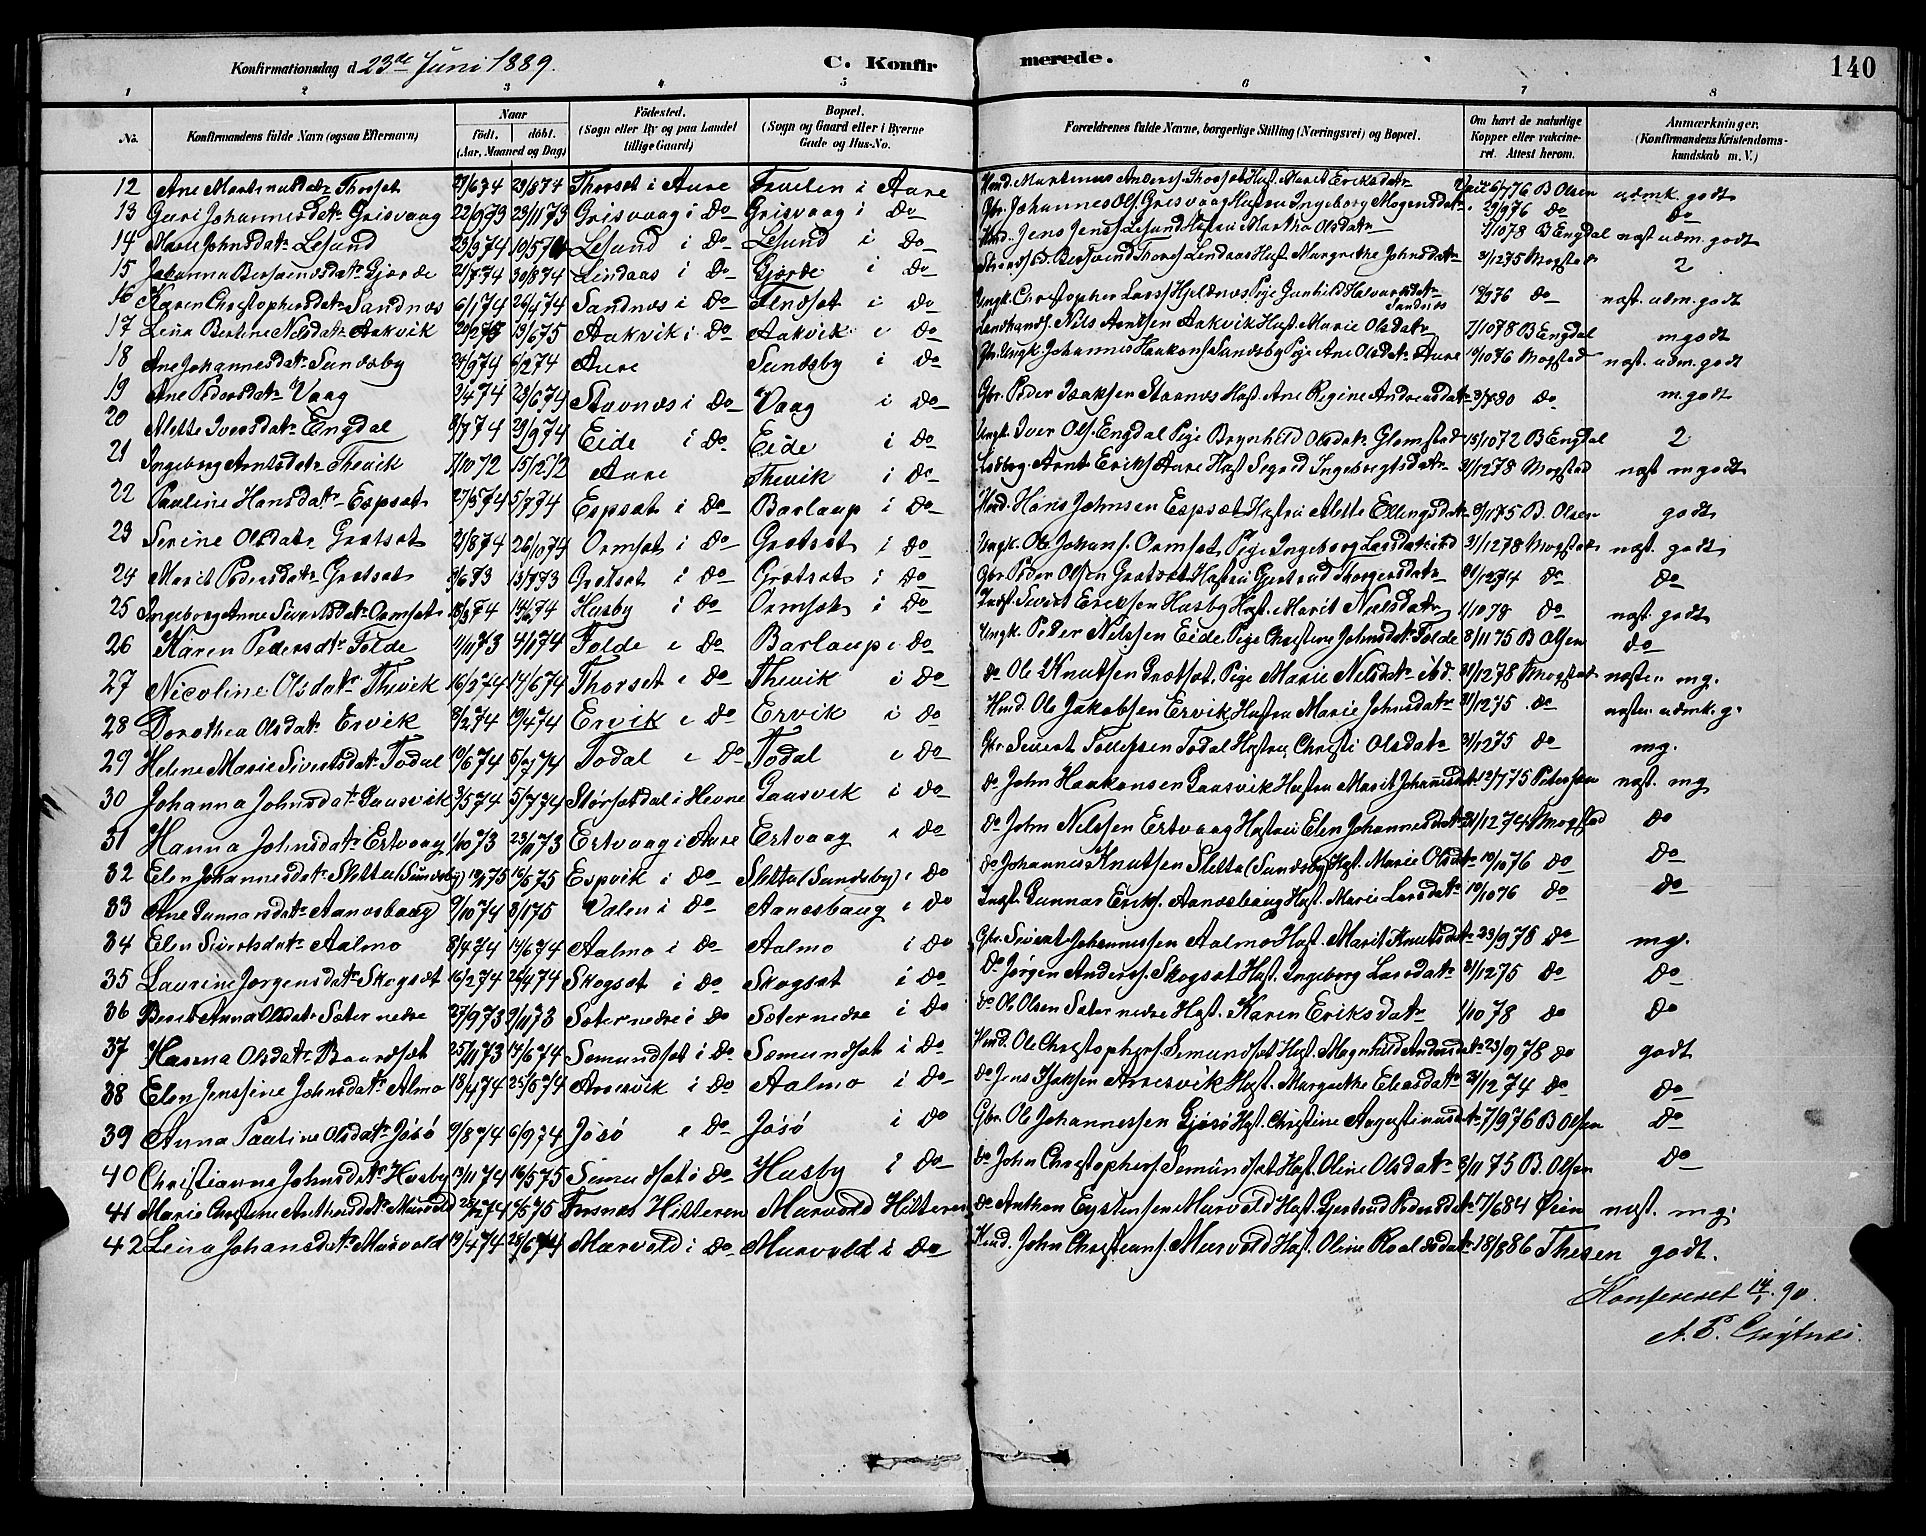 Konfirmationsdag d. 23de Juni 1889. C. Konfirmerede. 140
1 2 3 4 5 6 7 8
No. Konfirmandens fulde Navn (ogsaa Efternavn) Naar födt, döbt. (Aar, Maaned og Dag) Födested. (Sogn eller By og paa Landet tillige Gaard) Bopæl. (Sogn og Gaard eller i Byerne Gade og Hus-No. Forældrenes fulde Navne, borgerlige Stilling (Næringsvei) og Bopæl. Om havt de naturlige Kopper eller vakcineret. Attest herom. Anmærkninger. (Konfirmandens Kristendomskundskab m. V.)
12 Ane Martinusdatr Thorset 29/674 Thorset i Aure i Aure Martinus Anders. Thorset Hust. Marit Eriksdatr 76 B Olsen udmk. godt
13 Guri Johannesdatr Grisvaag 22/973 23/1173 Grisvaag i Do Grisvaag i Do Gbr. Johannes Ols. Grisvaag Hustru Ingeborg Mogensdatr 29/976 do do
14 Marie Johnsdatr Lesund 23/974 Lesund i Do Lesund i Do Jens Jens. Lesund Hustru Martha Olsdatr 7/1078 B Engdal næst udm. godt
15 Johanna Berssvendsdatr Gjørde 30/874 Lendaas i Do Gjørde i Do Berssvend Thores. Lendaas Hust. Margrethe Johnsdatr 31/1275 Mogstad 2
16 Karen Christophersdatr Sandnæs 6/174 26/474 Sandnæs i Do i Do Ungk. Christopher Lars. Pige Gunhild Halvorsdatr Sandnæs 19/976 do næst. udm. godt
17 Lena Bertine Nilsdatr Aakvik 13/675 Aakvik i Do Aakvik i Do Landhands. Nils Arntsen Aakvik Hust. Marie Olsdatr 7/1078 B Engdal mgodt
18 Ane Johannesdatr Sundsby Aure Sundsby i Do Ungk. Johannes Haakons. Sundsby Pige Ane Olsdatr Aure 10/1076 Mogstad næst. udm. godt
19 Ane Pedersdatr Vaag 9/474 23/674 Stavnæs i Do Vaag i Do Gbr. Peder Isaksen Stavnæs Hust. Ane Regine Andreasdatr do m. godt
20 Alette Iversdatr Engdal 8/774 29/974 Eide i Do Eide i Do Ungk. Iver Ols. Engdal Pige Brynhild Olsdatr Glomstad 13/1072 B Engdal 2
21 Ingeborg Arntsdatr Thevik 7/1072 15/1272 Aure Thevik i Do Arnt Eriks. Aure Hust. Sigrid Ingebrigtsdatr 31/1278 Mogstad næst mgodt
22 Pauline Hansdatr Espset 27/574 5/774 Espset i Do Barlaup i Do Hmd. Hans Johnsen Espset Hustru Alette Ellingsdatr 9/1175 B. Olsen godt
23 Serine Olsdatr Grøtset 21/874 26/1074 Ormset i Do Grøtset i Do Ungk. Ole Johans. Ormset, Pige Ingeborg Larsdatr ibid 31/1278 Mogstad næst. godt
24 Marit Pedersdatr Grøtset 9/673 13/773 Grøtset i Do Grøtset i Do Gbr. Peder Olsen Grøtset Hustru Gjertrud Thorgersdatr 31/1274 do do
25 Ingeborg Anne Sivertsdatr Ormset 14/674 Husby i Do Ormset i Do Indst. Sivert Eriksen Husby Hust. Marit Nilsdatr 1/1078 do næst. godt
26 Karen Pedersdatr Folde 11/1173 4/174 Folde i Do Barlaup i Do Ungk. Peder Nilssen Eide, Pige Christine Johnsdatr Folde 8/1175 B Olsen do
27 Nicoline Olsdatr Thevik 16/274 14/674 Thorset i Do Thevik i Do do Ole Knutsen Grøtset, Pige Marie Nilsdatr ibd. 31/1278 Mogstad næsten mg.
28 Dorothea Olsdatr Ervik 8/274 19/474 Ervik i Do Ervik i Do Hmd. Ole Jakobsen Ervik, Hustru Marie Johnsdatr 31/1275 do næsten udmk. g.
29 Helene Marie Sivertsdatr Todal 10/674 5/774 Todal i Do Todal i Do Gbr. Sivert Tollefsen Todal Hustru Christi Olsdatr 31/1275 do mg.
30 Johanna Johnsdatr Gaasvik 3/574 5/774 Størsetdal i Hevne Gaasvik i Do do John Haakonsen Gaasvik Hustru Marit Johannesdatr 12/775 Petersen næst. mg
31 Hanna Johnsdatr Ertvaag 1/1073 23/1173 Ertvaag i Aure Ertvaag i Do do John Nilssen Ertvaag Hustru Elen Johannesdatr 31/1274 Mogstad do
32 Elen Johannesdatr Sletta (Sundsby) 19/175 16/575 Espvik i Do Sletta (Sundsby) i Do do Johannes Knutsen Sletta (Sundsby) Hust. Marie Olsdatr 10/1076 do do
33 Ane Gunnarsdatr Aanesbaug 9/1074 3/175 Valen i Do Aanesbaug i Do Indst. Gunnar Eriks. Aanesbaug Hust. Marie Larsdatr 10/1076 do do
34 Elen Sivertsdatr Aalmo 8/474 14/674 Aalmo i Do Aalmo i Do Gbr. Sivert Johannessen Aalmo Hust. Marit Knutsdatr 23/978 do mg.
35 Laurine Jørgensdatr Skogset 16/274 26/474 Skogset i Do Skogset i Do do Jørgen Anderss. Skogset Hust. Ingeborg Larsdatr 31/1275 do do
36 Berit Anna Olsdatr Sæter nedre 27/973 9/1173 Sæter nedre i Do Sæter nedre i Do do Ole Olsen Sæter nedre Hust. Karen Eriksdatr 1/1078 do do
37 Hasma Olsdatr Baardset 25/1173 14/674 Semundset i Do Semundset i Do Hmd. Ole Christophers. Semundset Hust. Magnhild Andersdatr 23/978 do godt
38 Elen Jenssine Johnsdatr Almo 18/474 25/574 Arnesvik i Do Aalmo i Do do Jens Isaksen Arnesvik Hust. Margrethe Eliasdatr 31/1274 do do
39 Anna Pauline Olsdatr Jøsø 9/874 6/974 Jøsø i Do Jøsø i Do Gbr. Ole Johannessen Gjøsø Hust. Christine Augustinusdatr 17/976 B Olsen do
40 Christianne Johnsdatr Husby 13/1174 16/575 Semundset i Do Husby i Do do John Christophers. Semundset Hust. Oline Olsdatr 8/1175 B. Olsen do
41 Marie Christine Anthonsdatr Murvold Forsnes Hitteren Murvold Hitteren do Anthon Eystensen Murvold Hust. Gjertrud Pedersdatr 17/684 Øien næst. mg.
42 Lena Johansdatr Murvold 19/474 25/674 Murvold i Do Murvold i Do Hmd. John Christians. Murvold Hust. Oline Roaldsdatr 18/886 Thesen godt.
Konfereret 14/1 90.
A. P.